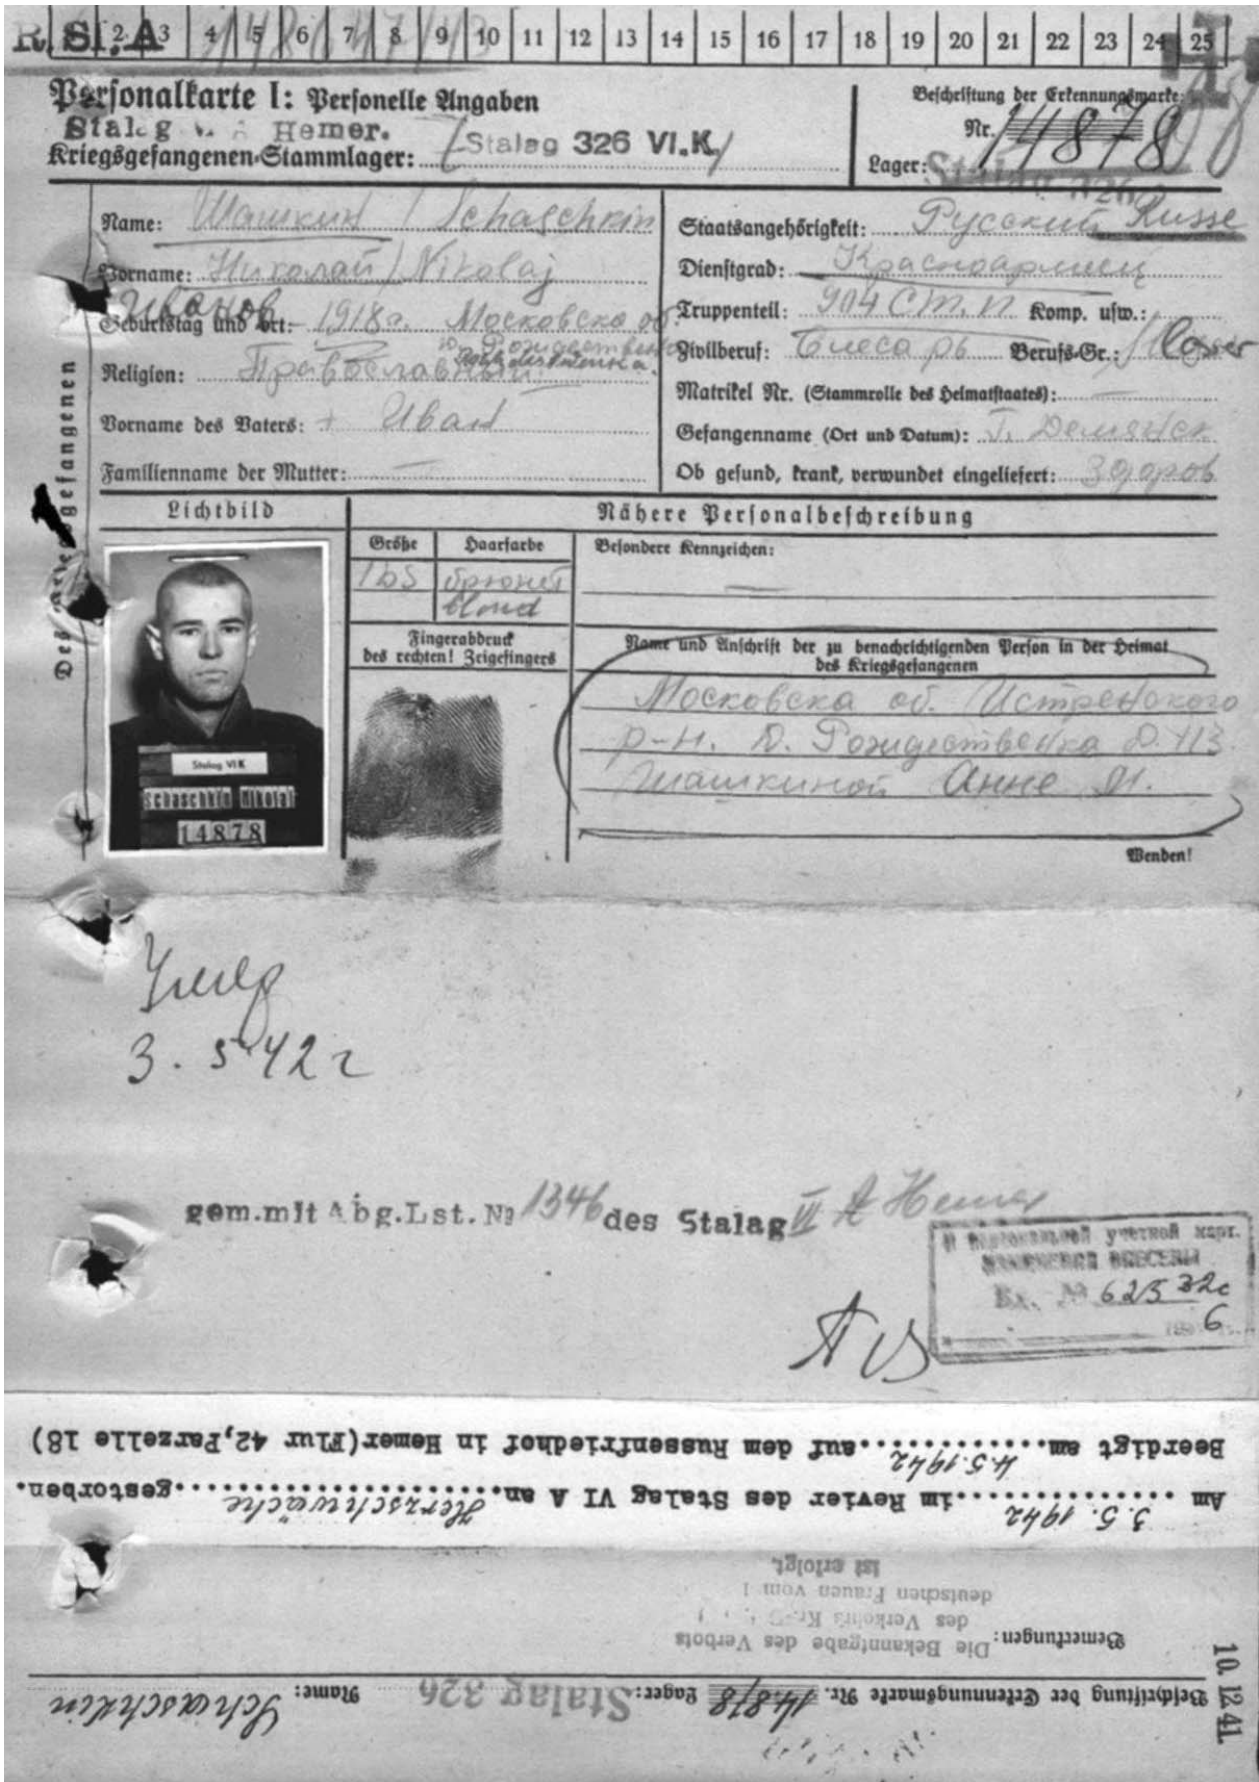 R. S. A
1 2 3 4 5 6 7 8 9 10 11 12 13 14 15 16 17 18 19 20 21 22 23 24 25
Personalkarte I: Personelle Angaben
Hemer.
Kriegsgefangenen-Stammlager: Stalag 326 VI.K.
Beschriftung der Erkennungsmarke:
Nr. 14878
Lager: Stalag 326
Name: Шашкин / Schaschkin
Vorname: Николай / Nikolaj
Иванов
Geburtstag und Ort: 1918г. Московска об.
д. Рождествено
Religion: Православный
Vorname des Vaters: + Иван
Familienname der Mutter: —
Staatsangehörigkeit: Русский Russe
Dienstgrad: Красноармеец
Truppenteil: 904 Ст. П Komp. usw.:
Zivilberuf: Слесарь Berufs-Gr.:
Matrikel Nr. (Stammrolle des Heimatstaates): —
Gefangenname (Ort und Datum): Г. Демянск
Ob gesund, krank, verwundet eingeliefert: Здоров
Des Kriegsgefangenen
Lichtbild
Nähere Personalbeschreibung
Größe Haarfarbe
165 брюнет
blond
Besondere Kennzeichen:
—
Fingerabdruck
des rechten! Zeigefingers
Name und Anschrift der zu benachrichtigenden Person in der Heimat
des Kriegsgefangenen
Московска об. Истренского
р-н. Д. Рождественка Д. 113
Шашкиной Анне М.
Stalag VI K
Schaschkin Nikolai
14878
Wenden!
Умер
3. 5 42 г
gem.mit Abg.Lst. № 1346 des Stalag VI A Hemer
К персональной учетной карт.
ИЗМЕНЕНИЯ ВНЕСЕНЫ
Вх. № 62532с
6
Beerdigt am 4.5.1942 auf dem Russenfriedhof in Hemer(Flur 42,Parzelle 18)
Am 3.5.1942 im Revier des Stalag VI A an Herzschwäche gestorben.
ist erfolgt.
deutschen Frauen vom
des Verkehrs
Bemerkungen: Die Bekanntgabe des Verbots
Beschriftung der Erkennungsmarke Nr. 14878 Lager: Stalag 326 Name: Schaschkin
10. 12. 41